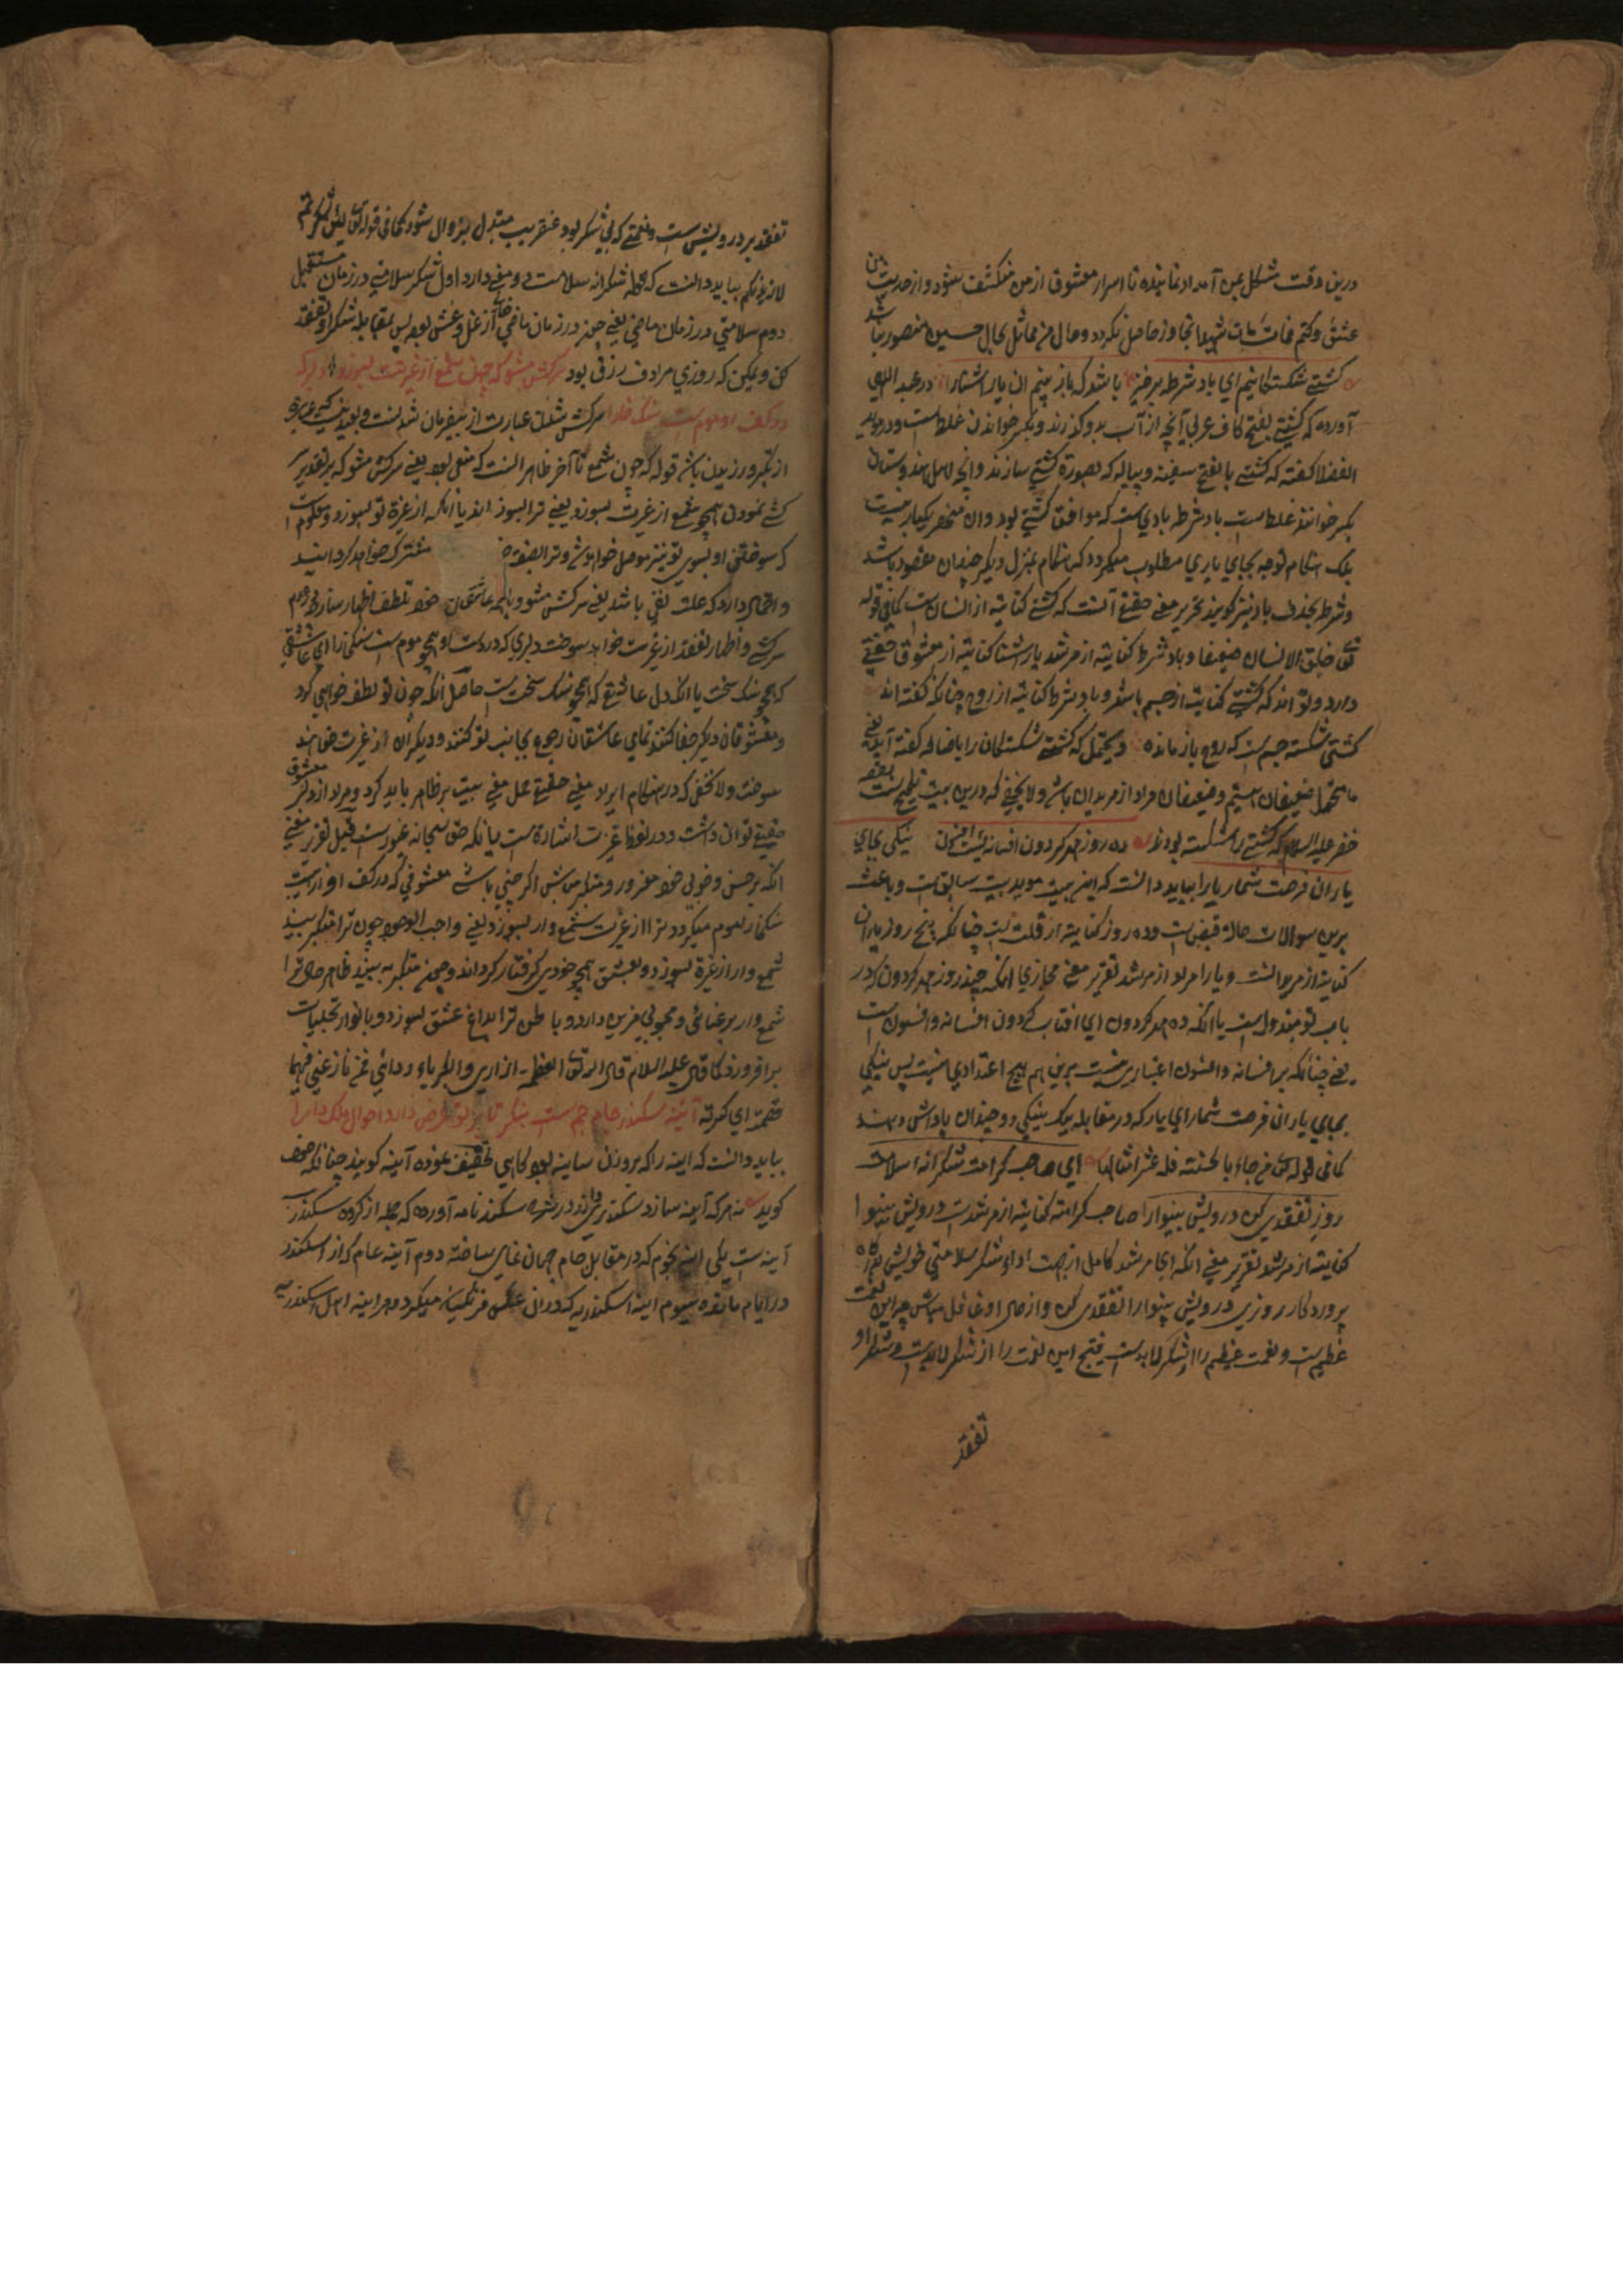 درین وقت مشکل بمن آمداد نماینده تا اسرار معشوق از من منکشف نشود و از حدیث من
عشق وکتم فمات مات شهیدا تجاوز حاصل نگردد وحال من مماثل بحال حسین منصور نباشد
کشتی شکستگانیم ای باد شرطه برخیز باشد که باز بینیم آن یار آشنا را در عبد اللهی
آورده که کشتی بفتح کاف عربی آنچه از آب بدو گذرند و بکسر خواندن غلط است و در موید
الفضلا گفته که کشتی بالفتح سفینه و پیاله که بصورة کشتی سازند و آنچه اهل هندوستان
بکسر خوانند غلط است باد شرطه بادی است که موافق کشتی بود وان منحصر بیکبار نیست
بلکه هنگام توجه بجای یاری مطلوب میگردد که هنگام منزل دیگر چندان مقصود باشد
وشرط بحذف باد نیز گویند تحریر معنی حقیقی آنست که کشتی کنایته از انسان است کما فی قوله
تعالی خلق الانسان ضعیفا و باد شرط کنایته از مرشد یار آشنا کنایته از معشوق حقیقی
دارد و تواند که کشتی کنایته از جسم باشد و باد شرط کنایته از روح چنانکه گفته اند
کشتی شکسته جسم است که روح باز مانده ویحتمل که کشتی شکستگان را باضافه گفته آید یعنی
ما متحمل ضعیفان هستیم و ضعیفان مراد از مریدان باشد ولا یخفی که درین بیت تلمیح است بقصه
خضر علیه السلام که کشتی را شکسته بودند ده روز مهر گردون افسانه است افسون نیکی بجای
یاران فرصت شمار یارا بباید دانست که این بیت موید بیت سابق است و باعث
برین سوالات حالة قبض است و ده روز کنایته از قلت است چنانکه پنج روز یاران
کنایته از مریدانست و یارا مراد از مرشد تقریر معنی مجازی آنکه چند روز مهر گردون که در
باب تو مبذول است یا آنکه ده مهر گردون ای افتاب گردون افسانه و افسون است
یعنی چنانکه بر افسانه و افسون اعتباری نیست برین هم هیچ اعتدادی نیست پس نیکی
بجای یاران فرصت شمار ای یار که در مقابله یک نیکی دو چندان پاداش دهند
کما فی قوله تعالی من جاء بالحسنته فله عشر امثالها ای صاحب کرامت شکرانه سلامت
روزی تفقدی کن درویش بینوا را صاحب کرامته کنایته از مرشد است درویش بینوا
کنایته از مرشد تقریر معنی آنکه ای مرشد کامل از جهت اداء شکر سلامتی خویش بدرگاه
پروردگار روزی درویش بینوا را تفقدی کن و از حال او غافل مباش چرا این نعمت
عظیم است و نعمت عظیم را شکر لابد است این نعمت را از شکر لابد است و شکر او
تفقد
تفقد بر درویش است و نعمتی که بی شکر بود عنقریب متبدل بزوال شود کما فی قوله تعالی لئن شکرتم
لازیدنکم بباید دانست که لفظ شکرانه سلامت دو معنی دارد اول شکر سلامتی در زمان مستقبل
دوم سلامتی در زمان ماضی یعنی چون در زمان ماضی خالی از غل و غش بود پس بمقابله شکر او تفقد
کن و یمکن که روزی مرادف رزق بود سرکش مشو که چون شمع از غیرتت بسوزد دلبر که
در کف او موم است سنگ خارا سرکش شدن عبارت از بیفرمان شدنست و بودن کسی عبارة
از تکبر ورزیدن باشد قوله که چون شمع تا آخر ظاهر انست که منفی بود یعنی سرکش مشو که بر تقدیر
کشی نمودن همچو شمع از غیرت بسوزد یعنی ترا بسوزاند یا آنکه از غیرة تو بسوزد و معلوم است
که سوختن او بسوی تو نیز موصل خواهد شد و ترا بصفوة مشترک خواهد گردانید
و احتمال دارد که علت نفی باشد یعنی سرکش مشو و با همه عاشقان خود تلطف اظهار ساز بر عدم
سرکشی و اظهار تفقد از غیرت خواهد سوخت دلبری که در دست او همچو موم است سنگ خارا ای عاشقی
که همچو سنگ سخت یا آنکه دل عاشق که همچو سنگ سخت است حاصل آنکه چون تو لطف خواهی کرد
و معشوقان دیگر جفا کنند تمامی عاشقان رجوع بجانب تو کنند و دیگران از غیرت خواهند
سوخت ولا یخفی که در هنگام ایراد معنی حقیقی عمل معنی بیت بر ظاهر باید کرد و مراد از دلبر معشوق
حقیقی توان داشت و در لفظ غیرت اشاره است بآنکه حق سبحانه غیور است قیل تقریر معنی
آنکه بر حسن و خوبی خود مغرور و متکبر مباش اگر چنین باشی معشوقی که در کف او از دست
سنگ خارا موم میگردد ترا از غیرت شمع وار بسوزد یعنی واجب الوجود چون ترا متکبر بیند
شمع وار از غیرة بسوزد و بعشق همچو خودی گرفتار گرداند و چون متکبر نه بیند ظاهر حال ترا
شمع وار برعنائی و محبوبی مزین دارد و باطن ترا بداغ عشق بسوزد و بانوار تجلیات
برافروزد کما قال علیه السلام قال الله تعالی العظمة ازاری والکبریاء ردائی فمن نازعنی فیهما
قصمته ای کسرته آئینه سکندر جام جم است بنگر تا بر تو عرض دارد احوال ملک دارا
بباید دانست که آینه را که بر وزن ساینه بود گاهی تخفیف نموده آینه گویند چنانکه حافظ
گوید نه هر که آینه سازد سکندری داند در شرح سکندر نامه آورده که جمله از گروه سکندر سه
آینه ست یکی آینه نجوم که در مقابل جام جهان نمای ساخته دوم آینه عام که از اسکندر
در ایام مانده سیوم آینه اسکندریه که در آن عکس فرنگیان میگردد و هر آینه اهل اسکندریه